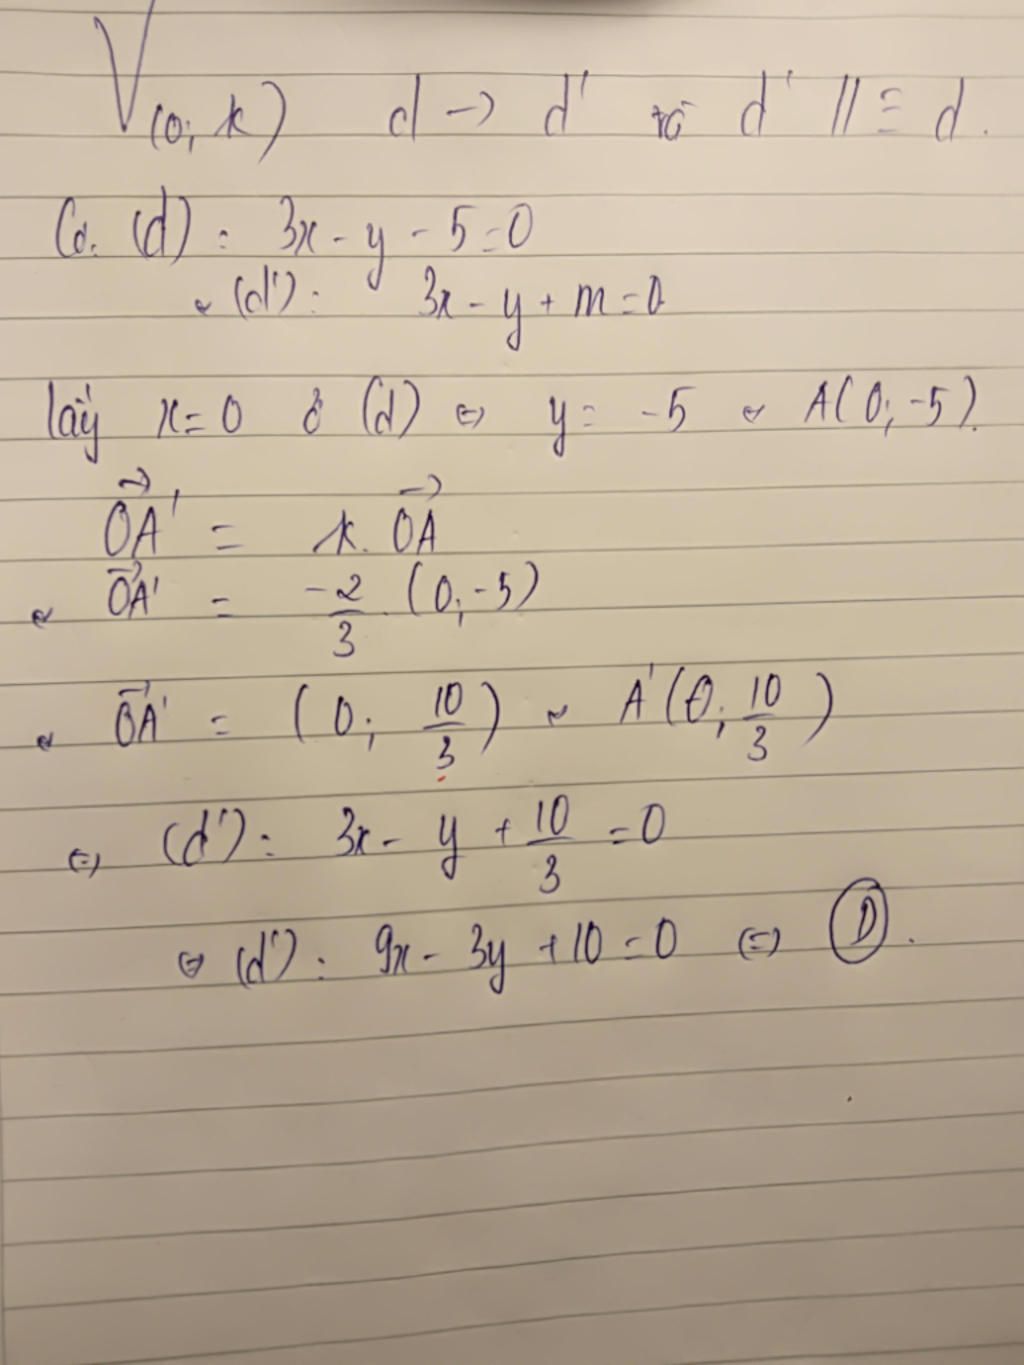 V(O; k) d → d' và d' // ≡ d.
Có. (d) : 3x - y - 5 = 0
(d') : 3x - y + m = 0
lấy x = 0 ở (d) ⇔ y = -5 A(0; -5).
OA' = k. OA
OA' = -2/3 . (0; -5)
OA' = (0; 10/3) A'(0; 10/3)
⇔ (d') : 3x - y + 10/3 = 0
⇔ (d') : 9x - 3y + 10 = 0 ⇔ D.